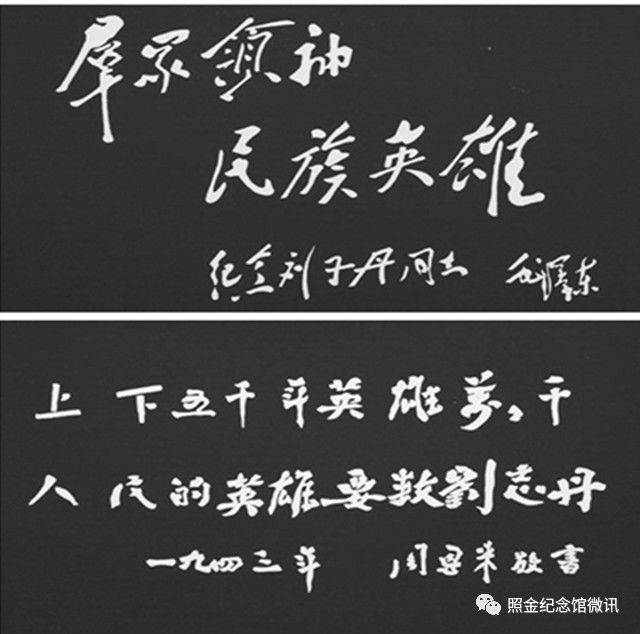 羣眾領袖
民族英雄
纪念刘子丹同志 毛澤东
上下五千年英雄萬々千
人民的英雄要数劉志丹
一九四三年 周恩来敬書
照金纪念馆微讯